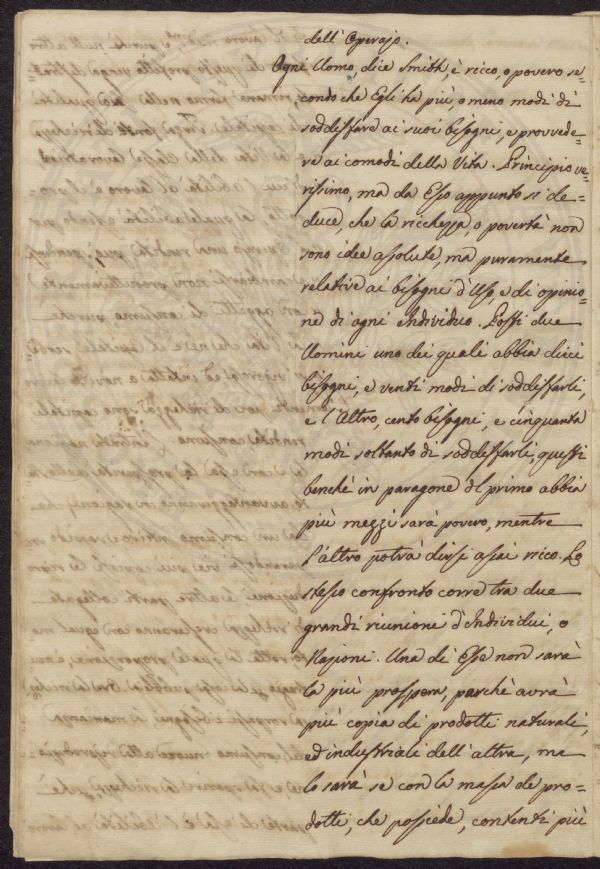 dell'Operajo.
Ogni Uomo, dice Smith, è ricco, o povero se-
condo che Egli ha più, o meno modi di
soddisfare ai suoi bisogni, e provvede-
re ai comodi della Vita. Principio ve-
rissimo, ma da Esso appunto si de-
duce, che la ricchezza, o povertà non
sono idee assolute, ma puramente
relative ai bisogni d'Uso, e di opinio-
ne di ogni Individuo. Possi due
Uomini uno dei quali abbia dieci
bisogni, e venti modi di soddisfarli,
e l'Altro, cento bisogni, e cinquanta
modi soltanto di soddisfarli, questi
benchè in paragone del primo abbia
più mezzi sarà povero, mentre
l'altro potrà dirsi assai ricco. Lo
stesso confronto corre tra due
grandi riunioni d'Individui, o
Nazioni. Una di Esse non sarà
la più prospera, perchè avrà
più copia di prodotti naturali,
ed industriali dell'altra, ma
lo sarà se con la massa de pro-
dotti, che possiede, contenti più